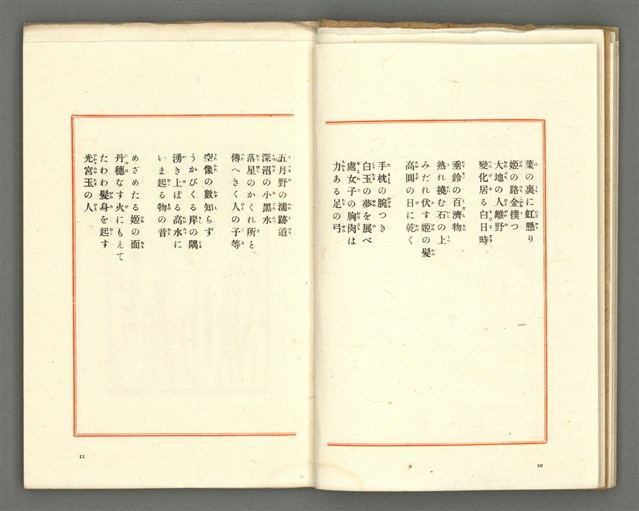 葉の裏に虹懸り
姫の路金撲つ
大地の人離野
變化居る白日時
垂鈴の百濟物
熟れ撓む石の上
みだれ伏す姫の髮
高圓の日に乾く
手枕の腕つき
白玉の夢を展べ
處女子の胸肉は
力ある足の弓
10
五月野の濡跡道
深沼の小黑水
落星のかくれ所と
傳へきく人の子等
空像の數知らず
うかびくる岸の隅
湧き上ぼる高水に
いま起る物の音
めざめたる姫の面
丹穗なす火にもえて
たわわ髮身を起す
光宮玉の人
11